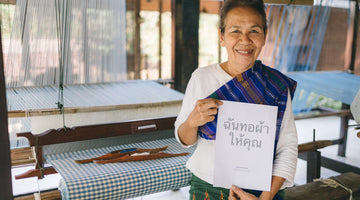 ฉันทอผ้า
ให้คุณ